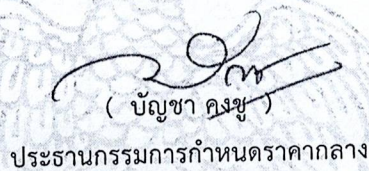 ( บัญชา คงชู )
ประธานกรรมการกำหนดราคากลาง